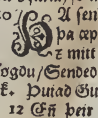 A sen
pa æp
z mitt
ogdu/Sendeo
k. Puiad Gu
12 Eñ þeir